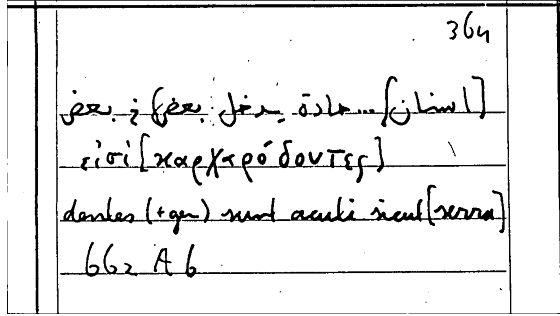 364
[اسنان]... حادة يدخل بعض[ها] في بعض
εἰσὶ [καρχαρόδοντες]
dentes (+gen) sunt acuti sicut [serra]
662 A 6